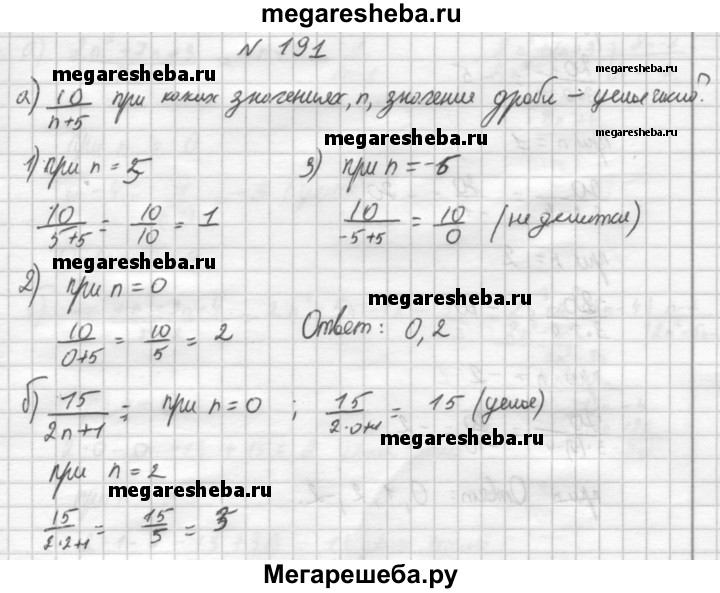 megaresheba.ru
N 191
megaresheba.ru
megaresheba.ru
а) 10/(n+5) при каких значениях, n, значения дроби – целые число?
megaresheba.ru
1) при n = 5
10/(5+5) = 10/10 = 1
megaresheba.ru
2) при n = 0
10/(0+5) = 10/5 = 2
3) при n = -5
10/(-5+5) = 10/0 (не делится)
megaresheba.ru
Ответ: 0, 2
б) 15/(2n+1) = при n = 0 ; 15/(2·0+1) = 15 (целое)
megaresheba.ru
при n = 2
megaresheba.ru
15/(2·2+1) = 15/5 = 3
Мегарешеба.ру